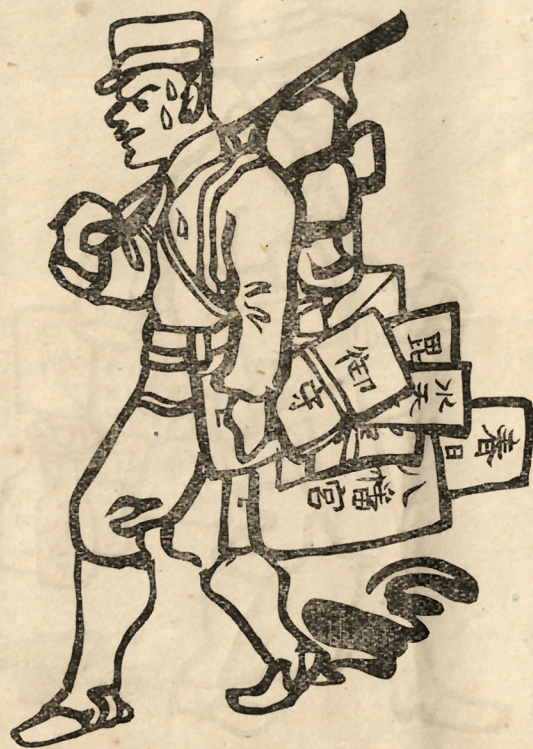 御守
毘
水天
春日
八幡宮